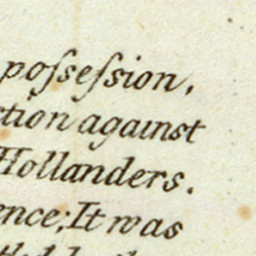 poſseſsion,
ction against
Hollanders.
ence; It was